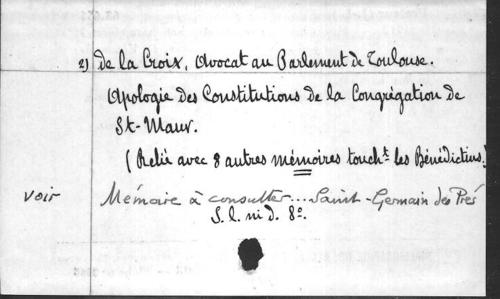 2) de la Croix, Avocat au Parlement de Toulouse.
Apologie des Constitutions de la Congrégation de
St-Maur.
(Relié avec 8 autres mémoires toucht les Bénédictins.)
voir Mémoire à consulter... Saint-Germain des Prés
S. l. ni d. 8o.